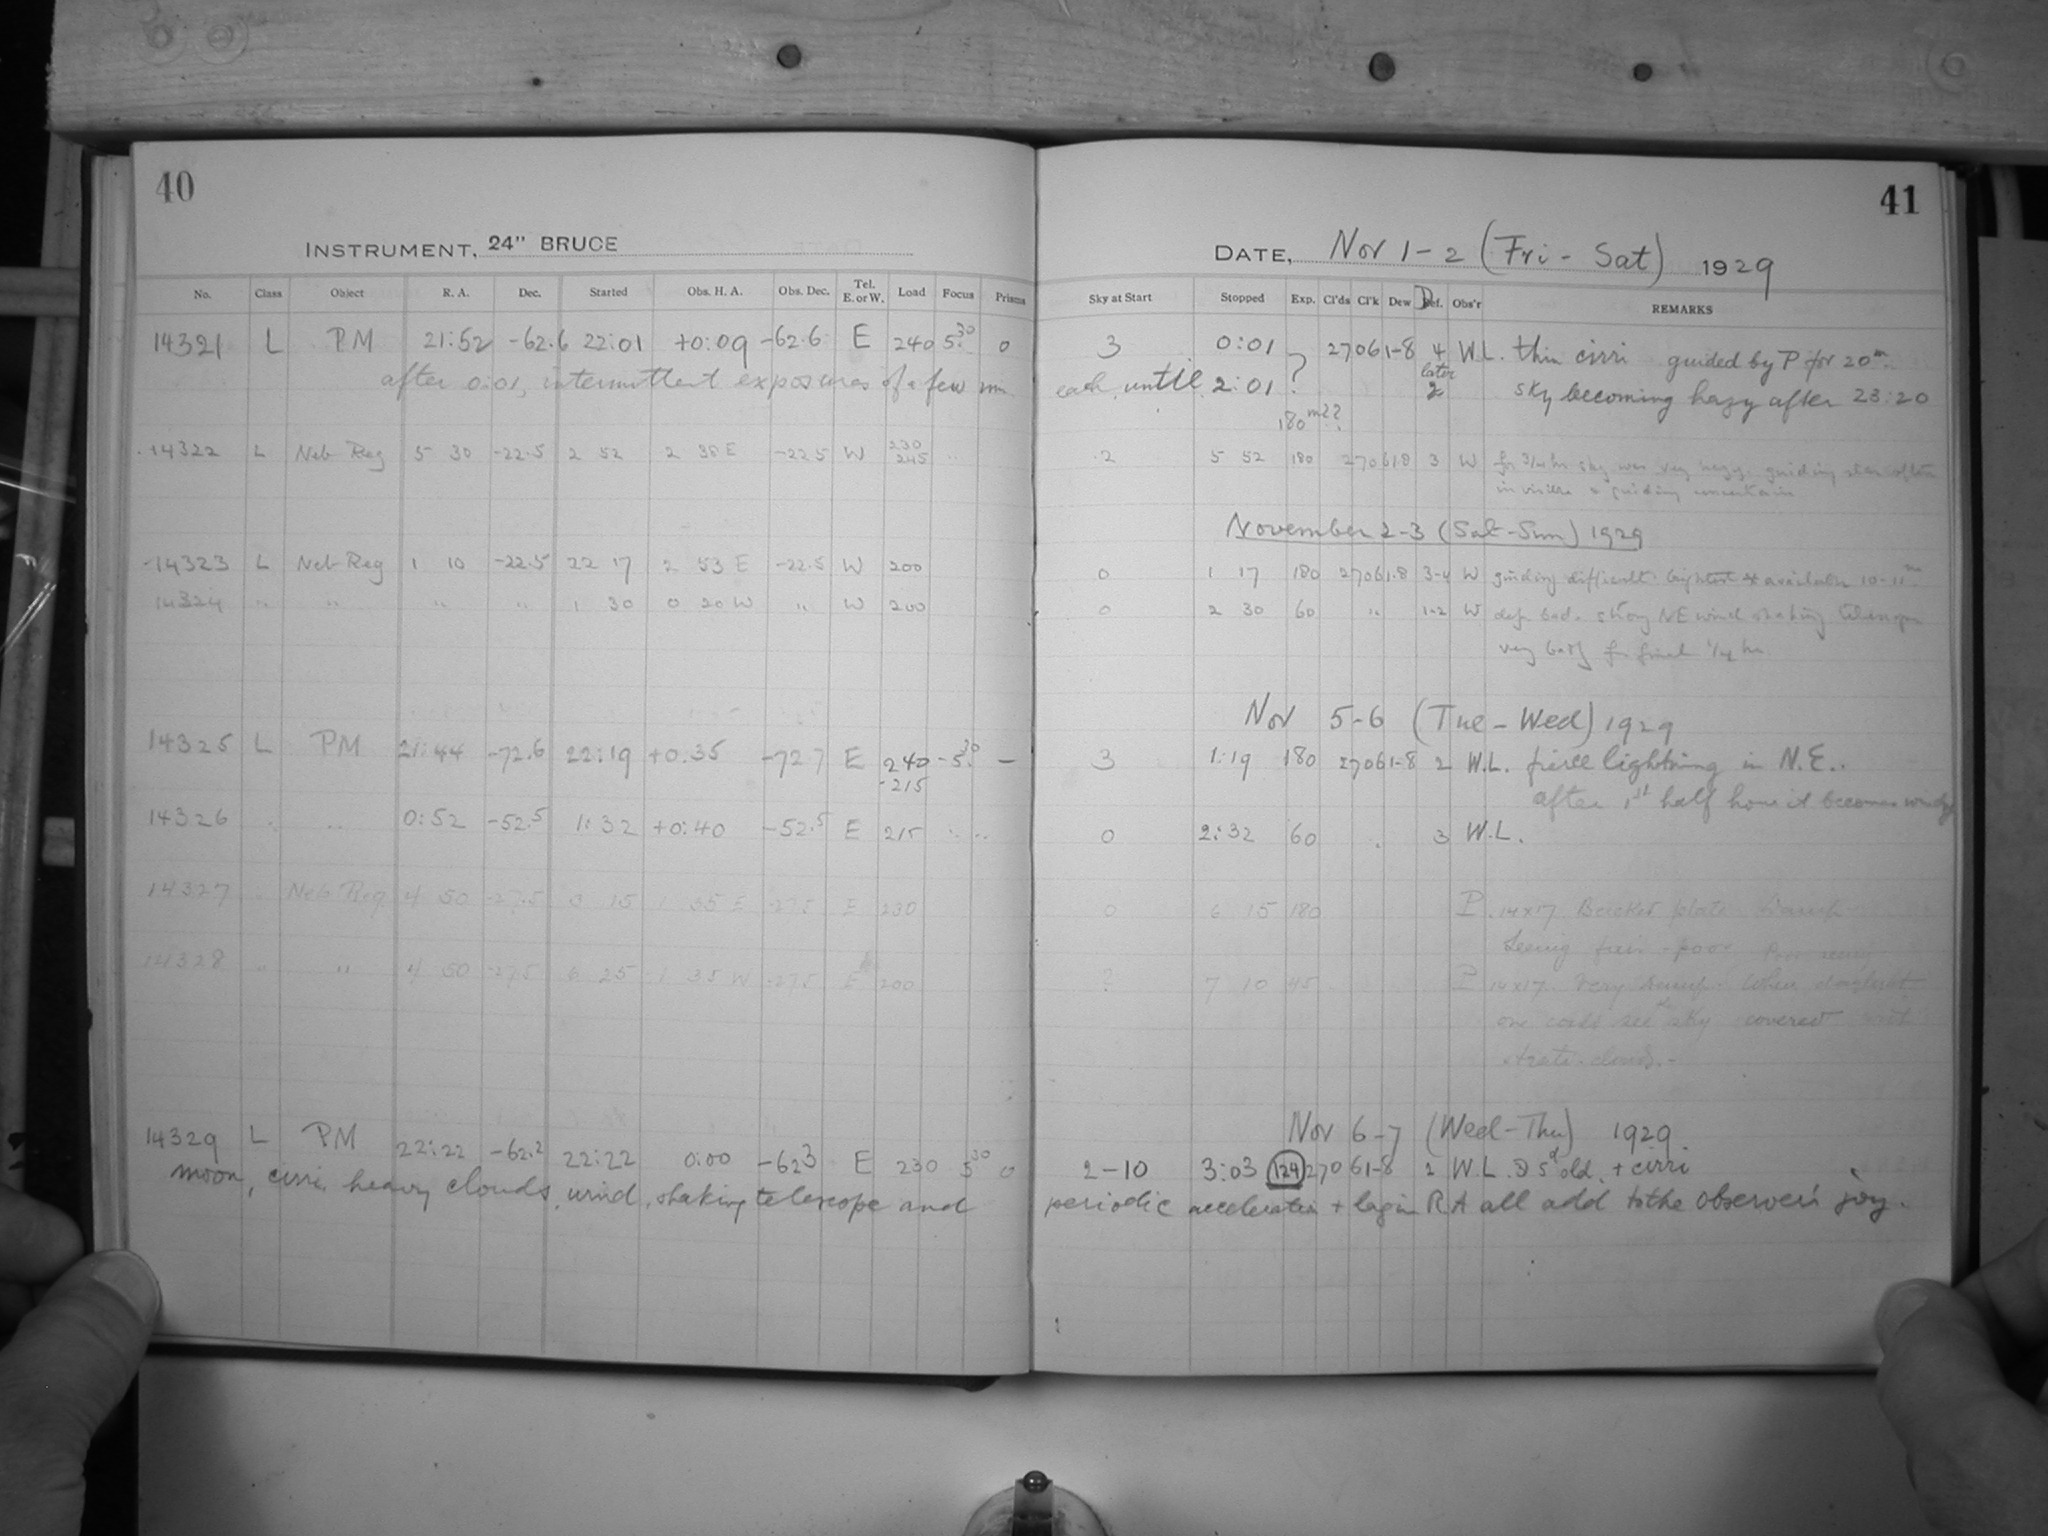 40
INSTRUMENT, 24" BRUCE
No. Class Object R. A. Dec. Started Obs. H. A. Obs. Dec. Tel. E. or W. Load Focus Prisms
14321 L PM 21:52 -62.6 22:01 +0:09 -62.6 E 240 5.30 0
after 0:01, intermittent exposures of a few mn
14322 L Neb Reg 5 30 -22.5 2 52 2 38 E -22.5 W 230 245
14323 L Neb Reg 1 10 -22.5 22 17 2 53 E -22.5 W 200
14324 " " " " 1 30 0 20 W " W 200
14325 L PM 21:44 -72.6 22:19 +0:35 -72.7 E 240 -5.30 –
-215
14326 " " 0:52 -52.5 1:32 +0:40 -52.5 E 215 " "
14327 " Neb Reg 4 50 -27.5 3 15 1 35 E -27.5 E 230
14328 " " 4 50 -27.5 6 25 1 35 W -27.5 E 200
14329 L PM 22:22 -62.2 22:22 0:00 -62.3 E 230 5.30 0
moon, cirri, heavy clouds, wind, shaking telescope and
41
DATE, Nov 1-2 (Fri - Sat) 1929
Sky at Start Stopped Exp. Cl'ds Cl'k Dew Def. Obs'r REMARKS
3 0:01 ? 27061-8 4 W.L. thin cirri guided by P for 20m.
each, until 2:01 later 2 sky becoming hazy after 23:20
180m??
2 5 52 180 27061.8 3 W for 3/4 hr sky was very hazy. guiding star often
invisible & guiding uncertain
November 2-3 (Sat-Sun) 1929
0 1 17 180 27061.8 3-4 W guiding difficult brightest * available 10-11m
0 2 30 60 " 1-2 W def. bad. strong NE wind shaking telescope
very badly for final 1/4 hr
Nov 5-6 (Tue-Wed) 1929
3 1:19 180 27061-8 2 W.L. fierce lightning in N.E..
after 1st half hour it becomes windy
0 2:32 60 " 3 W.L.
0 6 15 180 P. 14x17
Seeing fair - poor
? 7 10 45 P 14x17 Very When
one could see the sky covered with
strati-clouds.-
Nov 6-7 (Wed-Thu) 1929.
2-10 3:03 124 27061-8 2 W.L. ☽ 5d old. + cirri
periodic acceleration + lag in RA all add to the observer's joy.